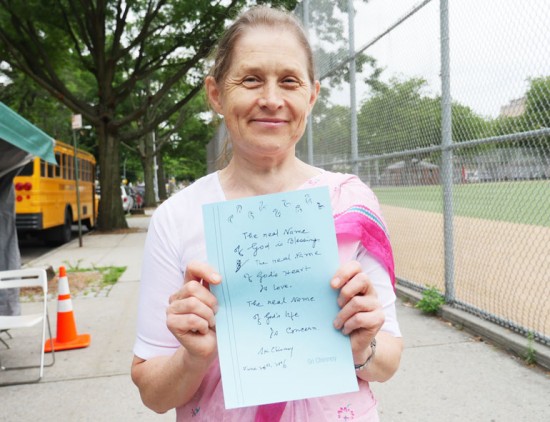 The real Name
of God is Blessings.
The real Name
of God's Heart
Is Love.
The real Name
of God's life
Is Concern
Sri Chinmoy